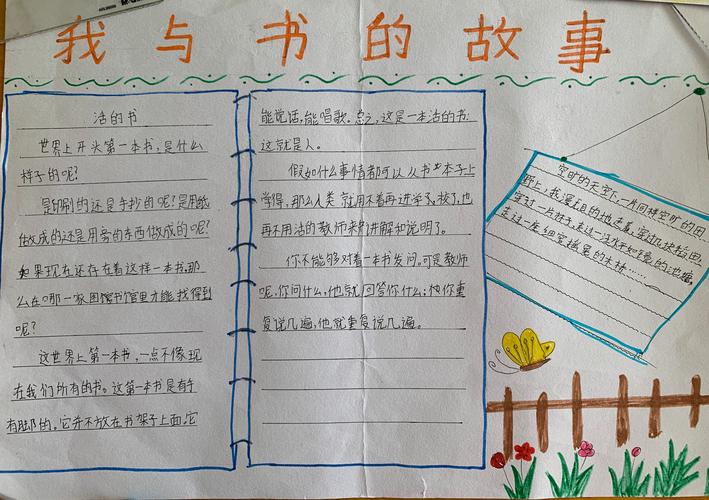 我与书的故事
活的书
世界上开头第一本书，是什么
样子的呢？
是印刷的还是手抄的呢？是用纸
做成的还是用旁的东西做成的呢？
如果现在还存在着这样一本书，那
么在哪一家图书馆里才能找得到
呢？
这世界上第一本书，一点不像现
在我们所有的书。这第一本书是有手
有脚的。它并不放在书架子上面。它
能说话，能唱歌。总之，这是一本活的书：
这就是人。
假如什么事情都可以从书本子上
学得，那么人类就用不着再进学校了，也
再不用活的教师来讲解和说明了。
你不能够对着一本书发问，可是教师
呢，你问什么，他就回答你什么；你要他重
复说几遍，他就重复说几遍。
空旷的天空下，一片同样空旷的田
野上，我漫无目的地走着，穿过几块稻田，
走过一片林子，走过一注水平如镜的池塘，
走过一座